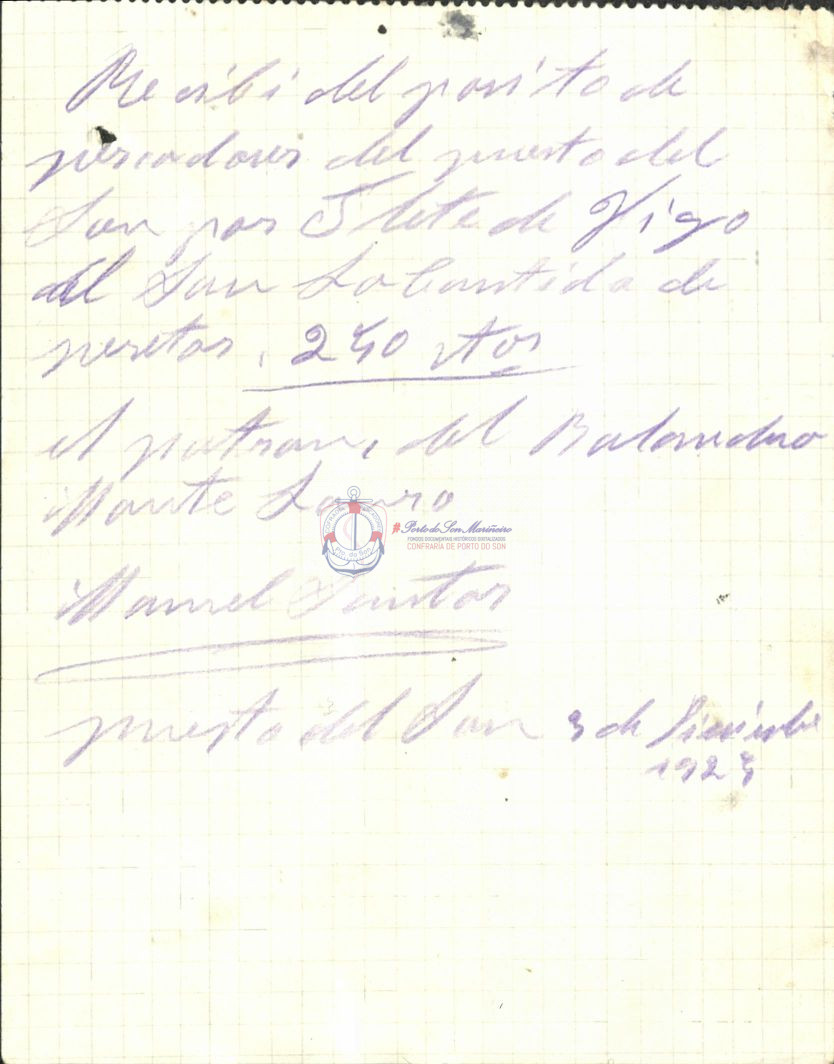 Recibi del posito de
pescadores del puerto del
Son por Flete de Vigo
al Son La Cantida de
pesetas, 250 ptas
el patron, del Balandro
Monte Louro
CONFRARÍA
Pto. do Son
#PortodoSonMariñeiro
FONDOS DOCUMENTAIS HISTÓRICOS DIXITALIZADOS
CONFRARÍA DE PORTO DO SON
Manuel Santos
puerto del Son 3 de Diciembre
192